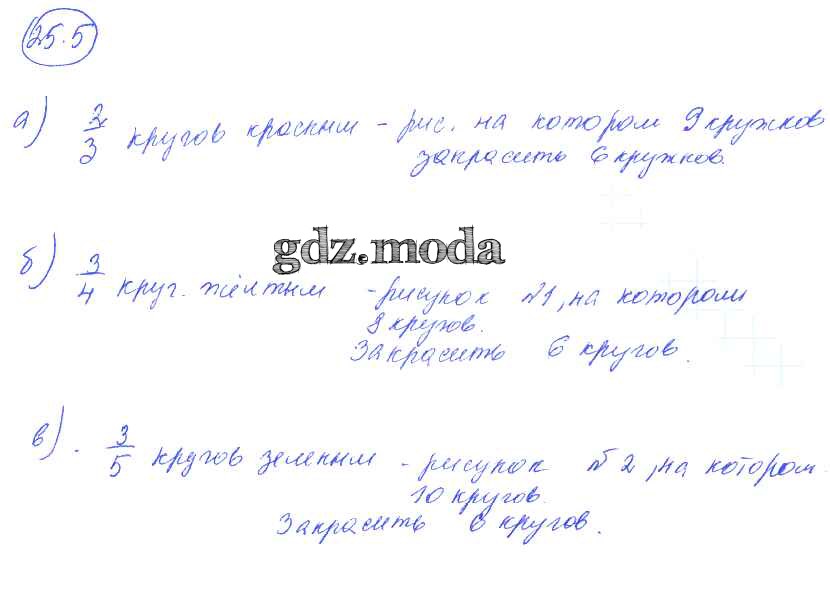 25.5
а) 2/3 кругов красным – рис. на котором 9 кружков
закрасить 6 кружков.
gdz.moda
б) 3/4 круг. жёлтым – рисунок №1, на котором
8 кругов.
Закрасить 6 кругов.
в). 3/5 кругов зеленым – рисунок №2, на котором
10 кругов.
Закрасить 6 кругов.